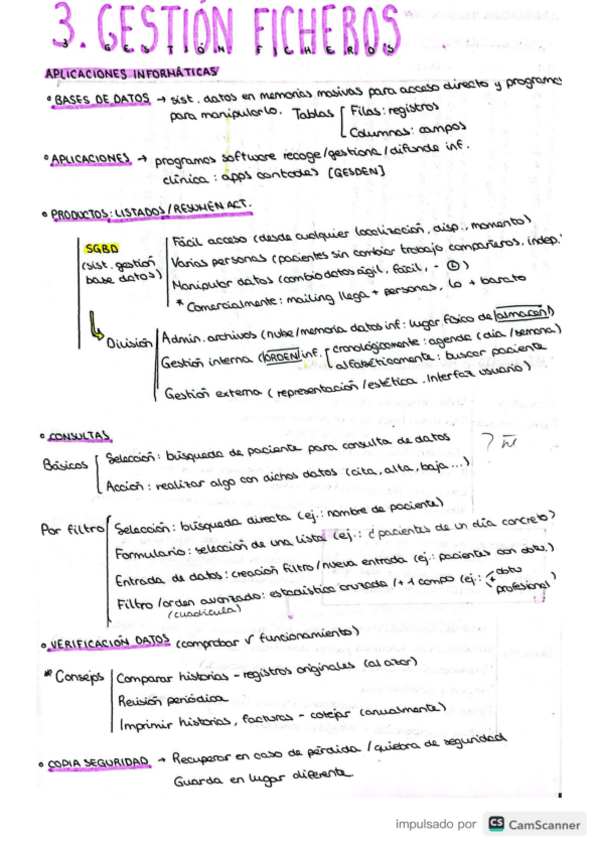 3. GESTIÓN FICHEROS
APLICACIONES INFORMÁTICAS
• BASES DE DATOS → sist. datos en memorias masivas para acceso directo y programa
para manipularlo. Tablas [ Filas: registros
Columnas: campos
• APLICACIONES → programas software recoge/gestiona/difunde inf.
clínica: apps contables [GESDEN]
• PRODUCTOS: LISTADOS/RESUMEN ACT.
SGBD
(sist. gestión
base datos)
Fácil acceso (desde cualquier localización, disp., momento)
Varias personas (pacientes sin cambiar trabajo compañeros. indep.
Manipular datos (cambio datos ágil, fácil, -
* Comercialmente: mailing llega + personas, lo + barato
División
Admin. archivos (nube/memoria datos inf: lugar físico de almacén!)
Gestión interna (ORDEN) inf. [ cronológicamente: agenda (día/semana)
alfabéticamente: buscar paciente
Gestión externa (representación/estética. Interfaz usuario)
• CONSULTAS
Básicas
Selección: búsqueda de paciente para consulta de datos
Acción: realizar algo con dichos datos (cita, alta, baja...)
Por filtro
Selección: búsqueda directa (ej.: nombre de paciente)
Formulario: selección de una lista (ej.: pacientes de un día concreto)
Entrada de datos: creación filtro/nueva entrada (ej.: pacientes con dolor)
Filtro/orden avanzado: estadística cruzada/+1 campo (ej.: + dato
(cuadrícula)
profesional)
• VERIFICACIÓN DATOS (comprobar √ funcionamiento)
* Consejos
Comparar historias - registros originales (al azar)
Revisión periódica
Imprimir historias, facturas - cotejar (anualmente)
• COPIA SEGURIDAD → Recuperar en caso de pérdida/quiebra de seguridad
Guarda en lugar diferente
impulsado por CS CamScanner